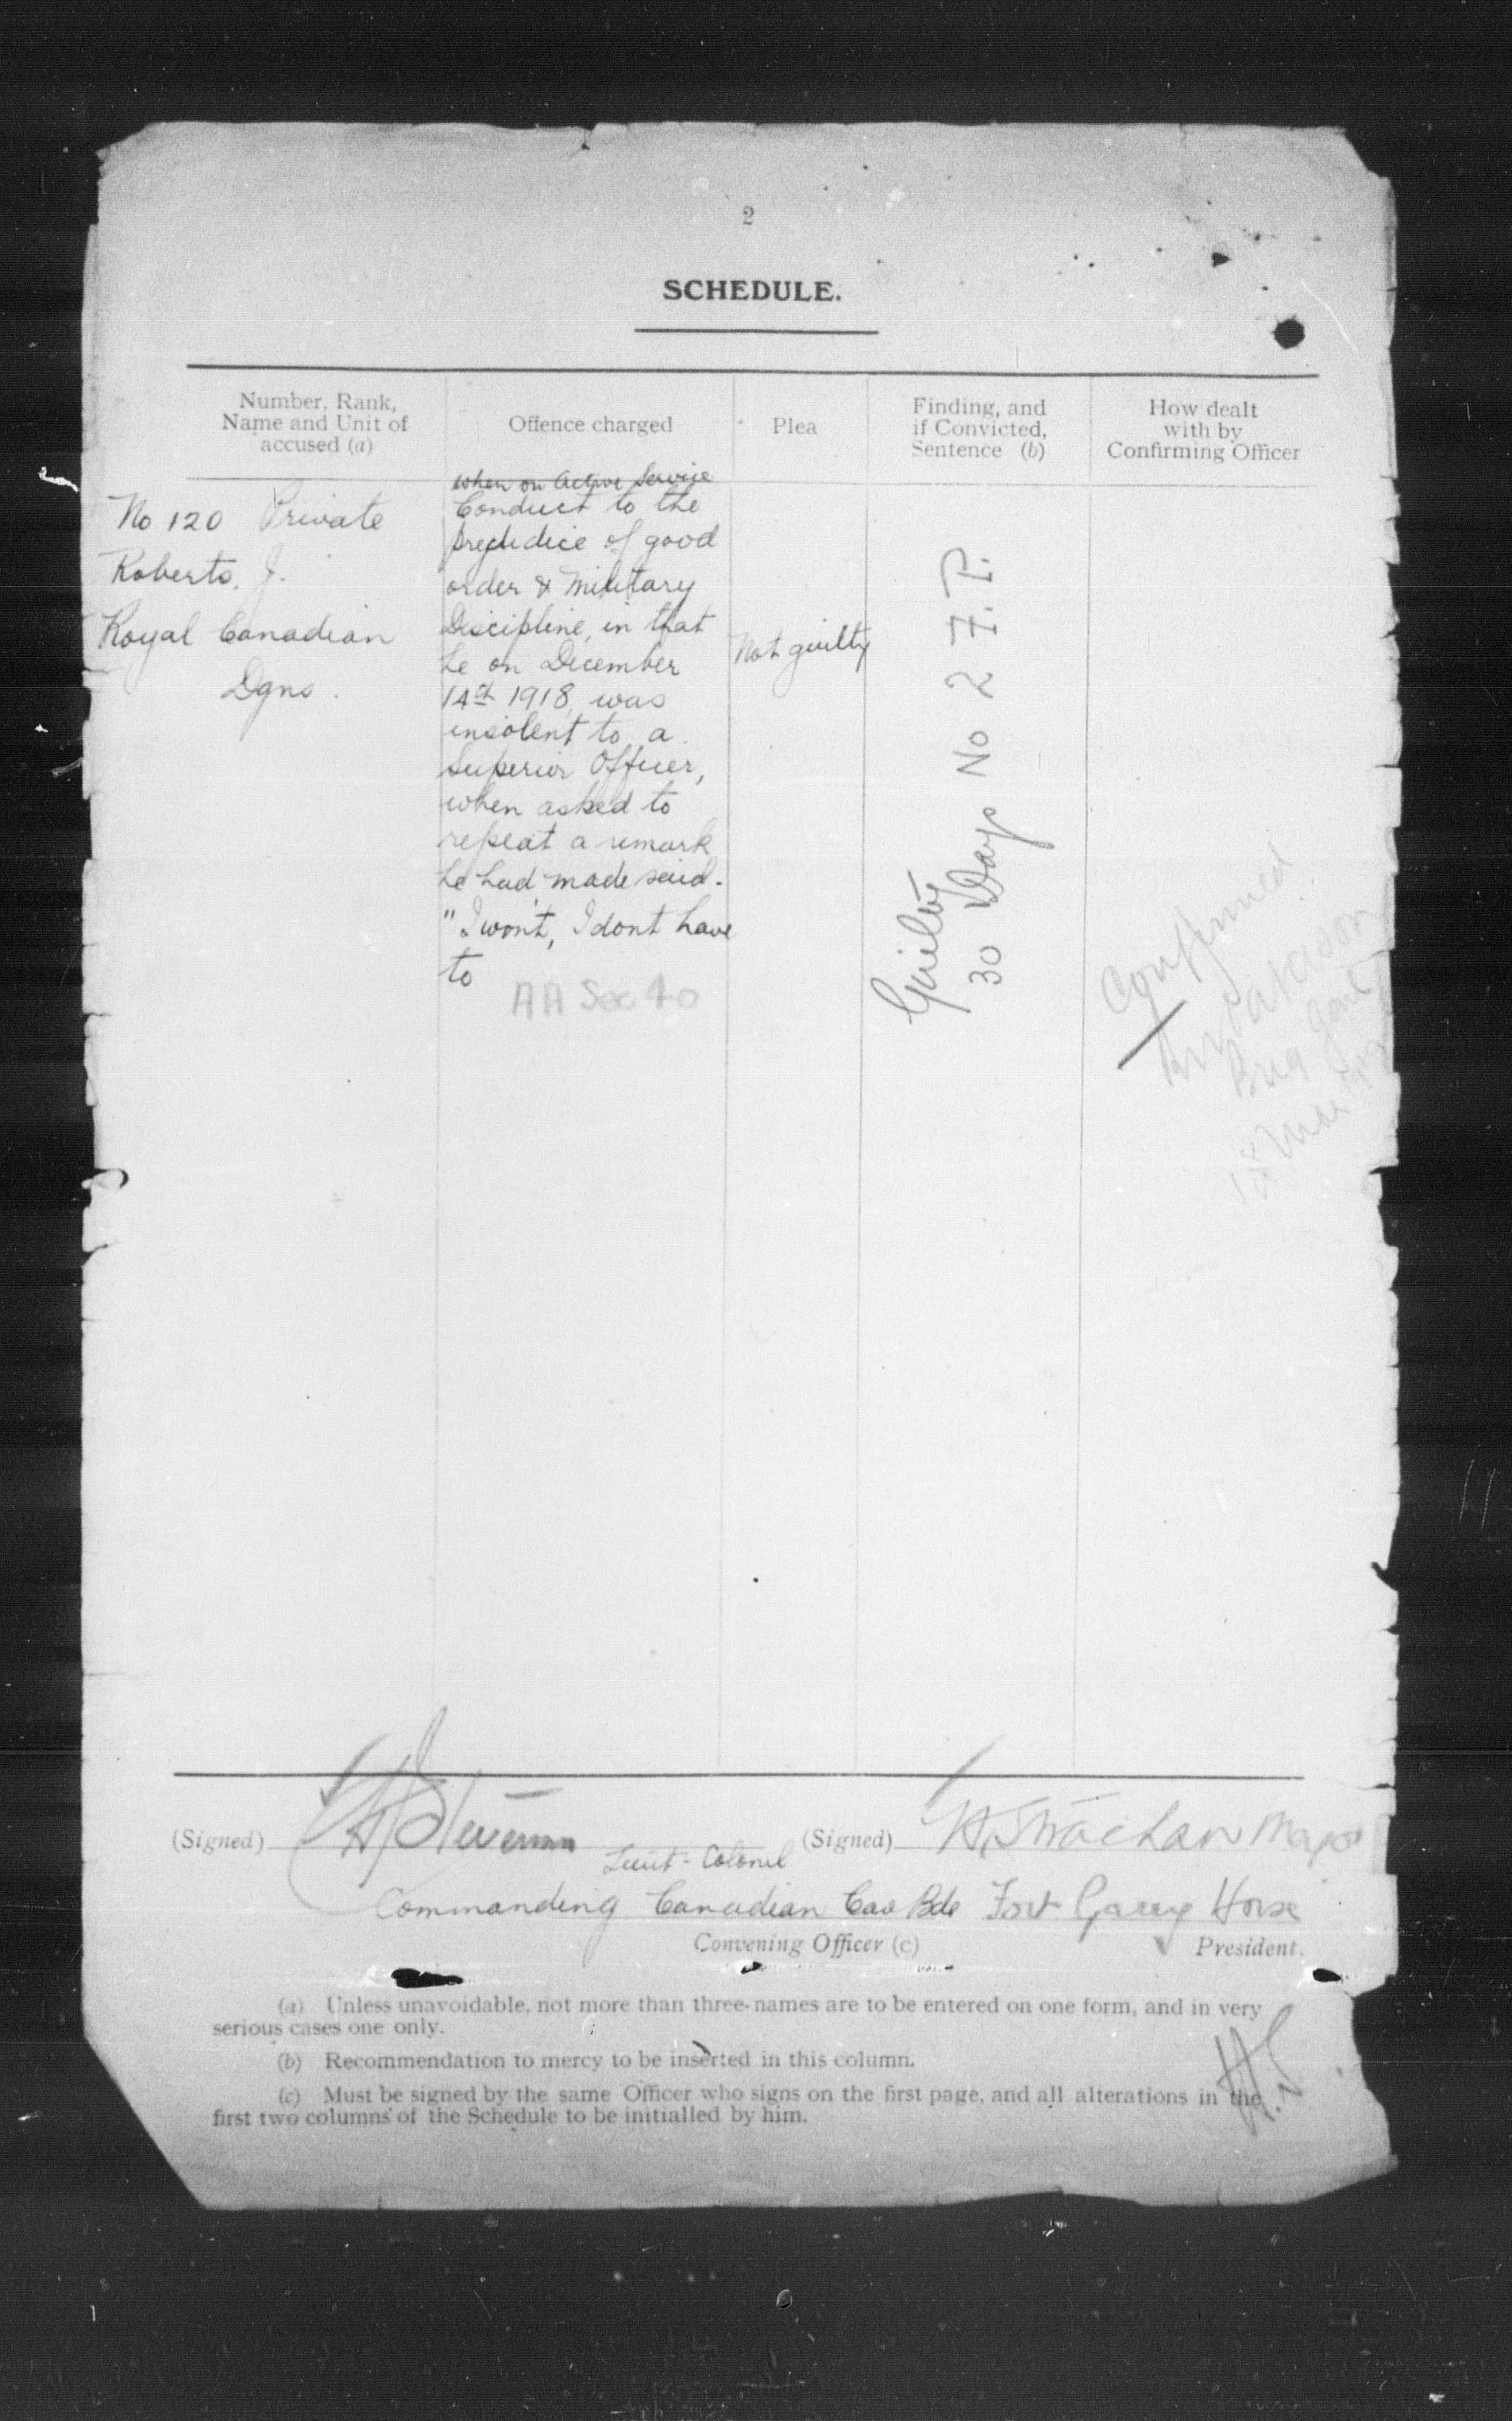 2
SCHEDULE.
Number, Rank,
Name and Unit of
accused (a)
Offence charged
Plea
Finding, and
if Convicted,
Sentence (b)
How dealt
with by
Confirming Officer
No 120 Private
Roberts, J.
Royal Canadian
Dgns.
when on Active Service
Conduct to the
prejudice of good
order & Military
Discipline, in that
he on December
14th 1918, was
insolent to a
Superior Officer,
when asked to
repeat a remark
he had made said.
"I won't, I dont have
to
AA Sec 40
Not guilty
Guilty
30 Days No 2 F.P.
Confirmed
Brig Genl
18 Mar
(Signed)
Lieut-Colonel
Commanding Canadian Cav Bde
Convening Officer (c)
(Signed) H. Strachan Major
Fort Garry Horse
President.
(a) Unless unavoidable, not more than three names are to be entered on one form, and in very
serious cases one only.
(b) Recommendation to mercy to be inserted in this column.
(c) Must be signed by the same Officer who signs on the first page, and all alterations in the
first two columns of the Schedule to be initialled by him.
H.S.